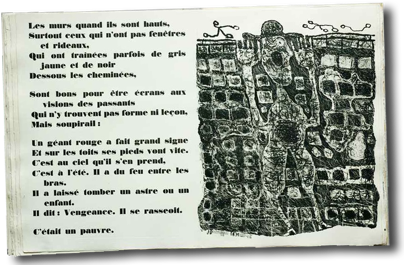 Les murs quand ils sont hauts,
Surtout ceux qui n'ont pas fenêtres
et rideaux,
Qui ont traînées parfois de gris
jaune et de noir
Dessous les cheminées,
Sont bons pour être écrans aux
visions des passants
Qui n'y trouvent pas forme ni leçon,
Mais soupirail :
Un géant rouge a fait grand signe
Et sur les toits ses pieds vont vite.
C'est au ciel qu'il s'en prend,
C'est à l'été. Il a du feu entre les
bras.
Il a laissé tomber un astre ou un
enfant.
Il dit : Vengeance. Il se rasseoit.
C'était un pauvre.